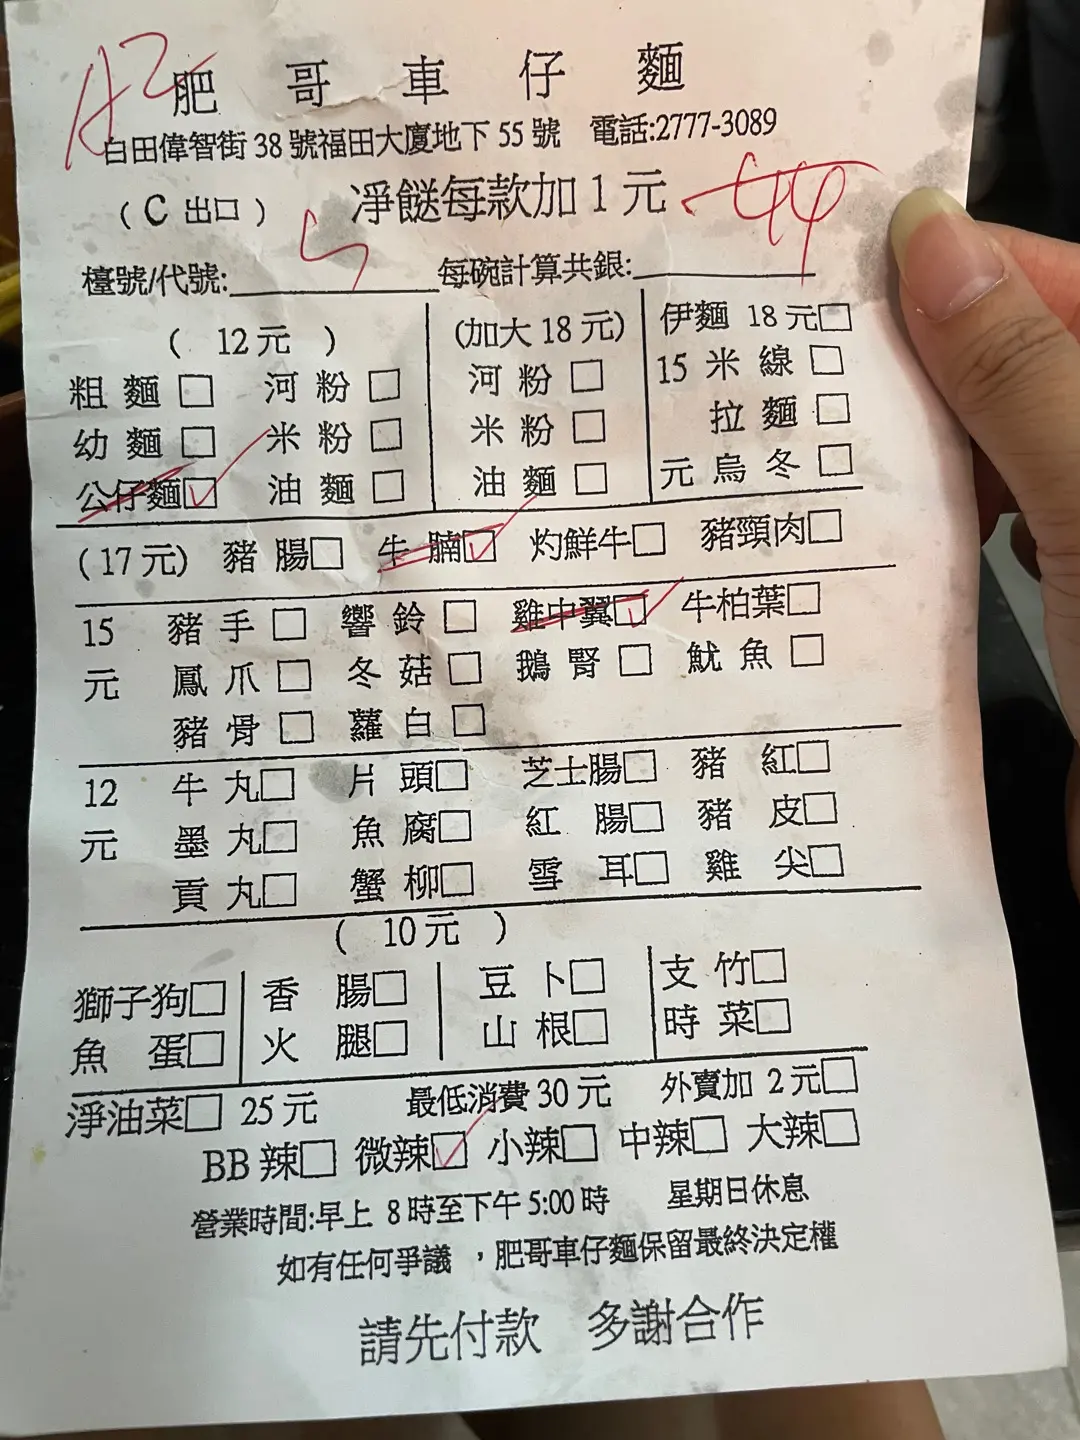 A2
肥哥車仔麵
白田偉智街 38 號福田大廈地下 55 號 電話:2777-3089
( C 出口 ) 凈餸每款加 1 元
5 44
檯號/代號: 每碗計算共銀:
( 12 元 ) (加大 18 元) 伊麵 18 元□
粗麵□ 河粉□ 河粉□ 15 米線□
幼麵□ 米粉□ 米粉□ 拉麵□
公仔麵☑ 油麵□ 油麵□ 元 烏冬□
(17 元) 豬腸□ 牛腩☑ 灼鮮牛□ 豬頸肉□
15 豬手□ 響鈴□ 雞中翼☑ 牛柏葉□
元 鳳爪□ 冬菇□ 鵝腎□ 魷魚□
豬骨□ 蘿白□
12 牛丸□ 片頭□ 芝士腸□ 豬紅□
元 墨丸□ 魚腐□ 紅腸□ 豬皮□
貢丸□ 蟹柳□ 雪耳□ 雞尖□
( 10 元 )
獅子狗□ 香腸□ 豆卜□ 支竹□
魚蛋□ 火腿□ 山根□ 時菜□
淨油菜□ 25 元 最低消費 30 元 外賣加 2 元□
BB 辣□ 微辣☑ 小辣□ 中辣□ 大辣□
營業時間:早上 8 時至下午 5:00 時 星期日休息
如有任何爭議，肥哥車仔麵保留最終決定權
請先付款 多謝合作